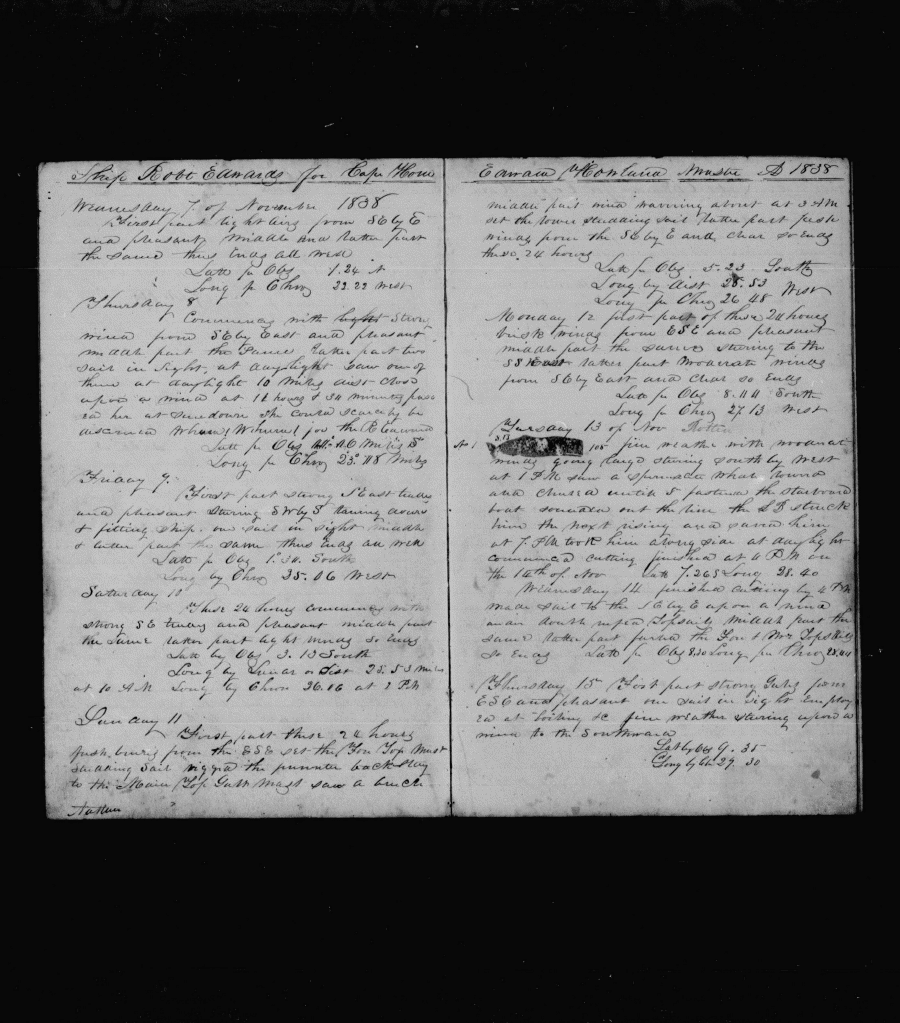 Ship Robt Edwards for Cape Horn
Wednesday 7 of November 1838
First part light airs from SE by E
and pleasant, middle and latter part
the same thus Ends all well
Latt pr Obs 1.24 N
Long pr Chro 22.22 West
Thursday 8
Commences with light strong
wind from SE by East and pleasant
middle part the Same latter part two
sail in Sight, at daylight saw one of
them at daylight 10 Miles dist close
upon a wind at 11 hours & 30 minutes pass
ed her at sundown She could scarcely be
discerned Whew! Whew! for the R Edwards
Latt pr Obs
Long pr Chro 23° 48 Miles
Friday 9
First part strong S East trades
and pleasant Stering SW by S taring down
& fitting ship. one sail in sight middle
& latter part the same thus Ends all well
Latt pr Obs 1°.30 South
Long by Chro 25.06 West
Saturday 10
These 24 hours commences with
strong SE trades and pleasant middle part
the same latter part light winds So Ends
Latt by Obs 3.13 South
Long by Lunar or Dist 25.53 miles
at 10 A.M Long by Chron 26.06 at 2 PM
Sunday 11
First part these 24 hours
fresh breeze from the ESE set the Fore Top Mast
studding Sail rigged the preventer back stay
to the Main Top Gall Mast saw a
Edward Howland Master AD 1838
middle part wind warring about at 3 AM
set the lower studding sail latter part fresh
winds from the SE by E and clear so Ends
these 24 hours
Latt pr Obs 5.23 South
Long by dist 25.53
Long pr Chro 26 48 West
Monday 12 first part of these 24 hours
brisk winds from ESE and pleasant
middle part the same stering to the
SS West latter part Moderate winds
from SE by East and clear so Ends
Latt pr Obs 8.44 South
Long pr Chro 27.13 West
Tuesday 13 of Nov
No 1 fine weather with moderate
winds going large stering south by West
at 1 PM saw a spermacite whale lowerd
and chased until 5 fastened the starboard
boat sounded out the line the LB struck
him the next rising and saved him
at 7. PM took him along side at daylight
commenced cutting finished at 4 P M on
the 14th of Nov Latt 7.26 S Long 28.40
Wednesday 14 finished cutting by 4 PM
made sail to the S by E upon a wind
under double reefed Topsails middle part the
same latter part furled the Fore & Miz Topsails
so Ends Latt pr Obs 8.30 Long pr Chro 28.44
Thursday 15 First part strong Gales from
ESE and pleasant one sail in Sight Employ
ed at boiling &c fine weather stering upon a
wind to the Southward
Lat by Obs 9.35
Long by Ch 29.30